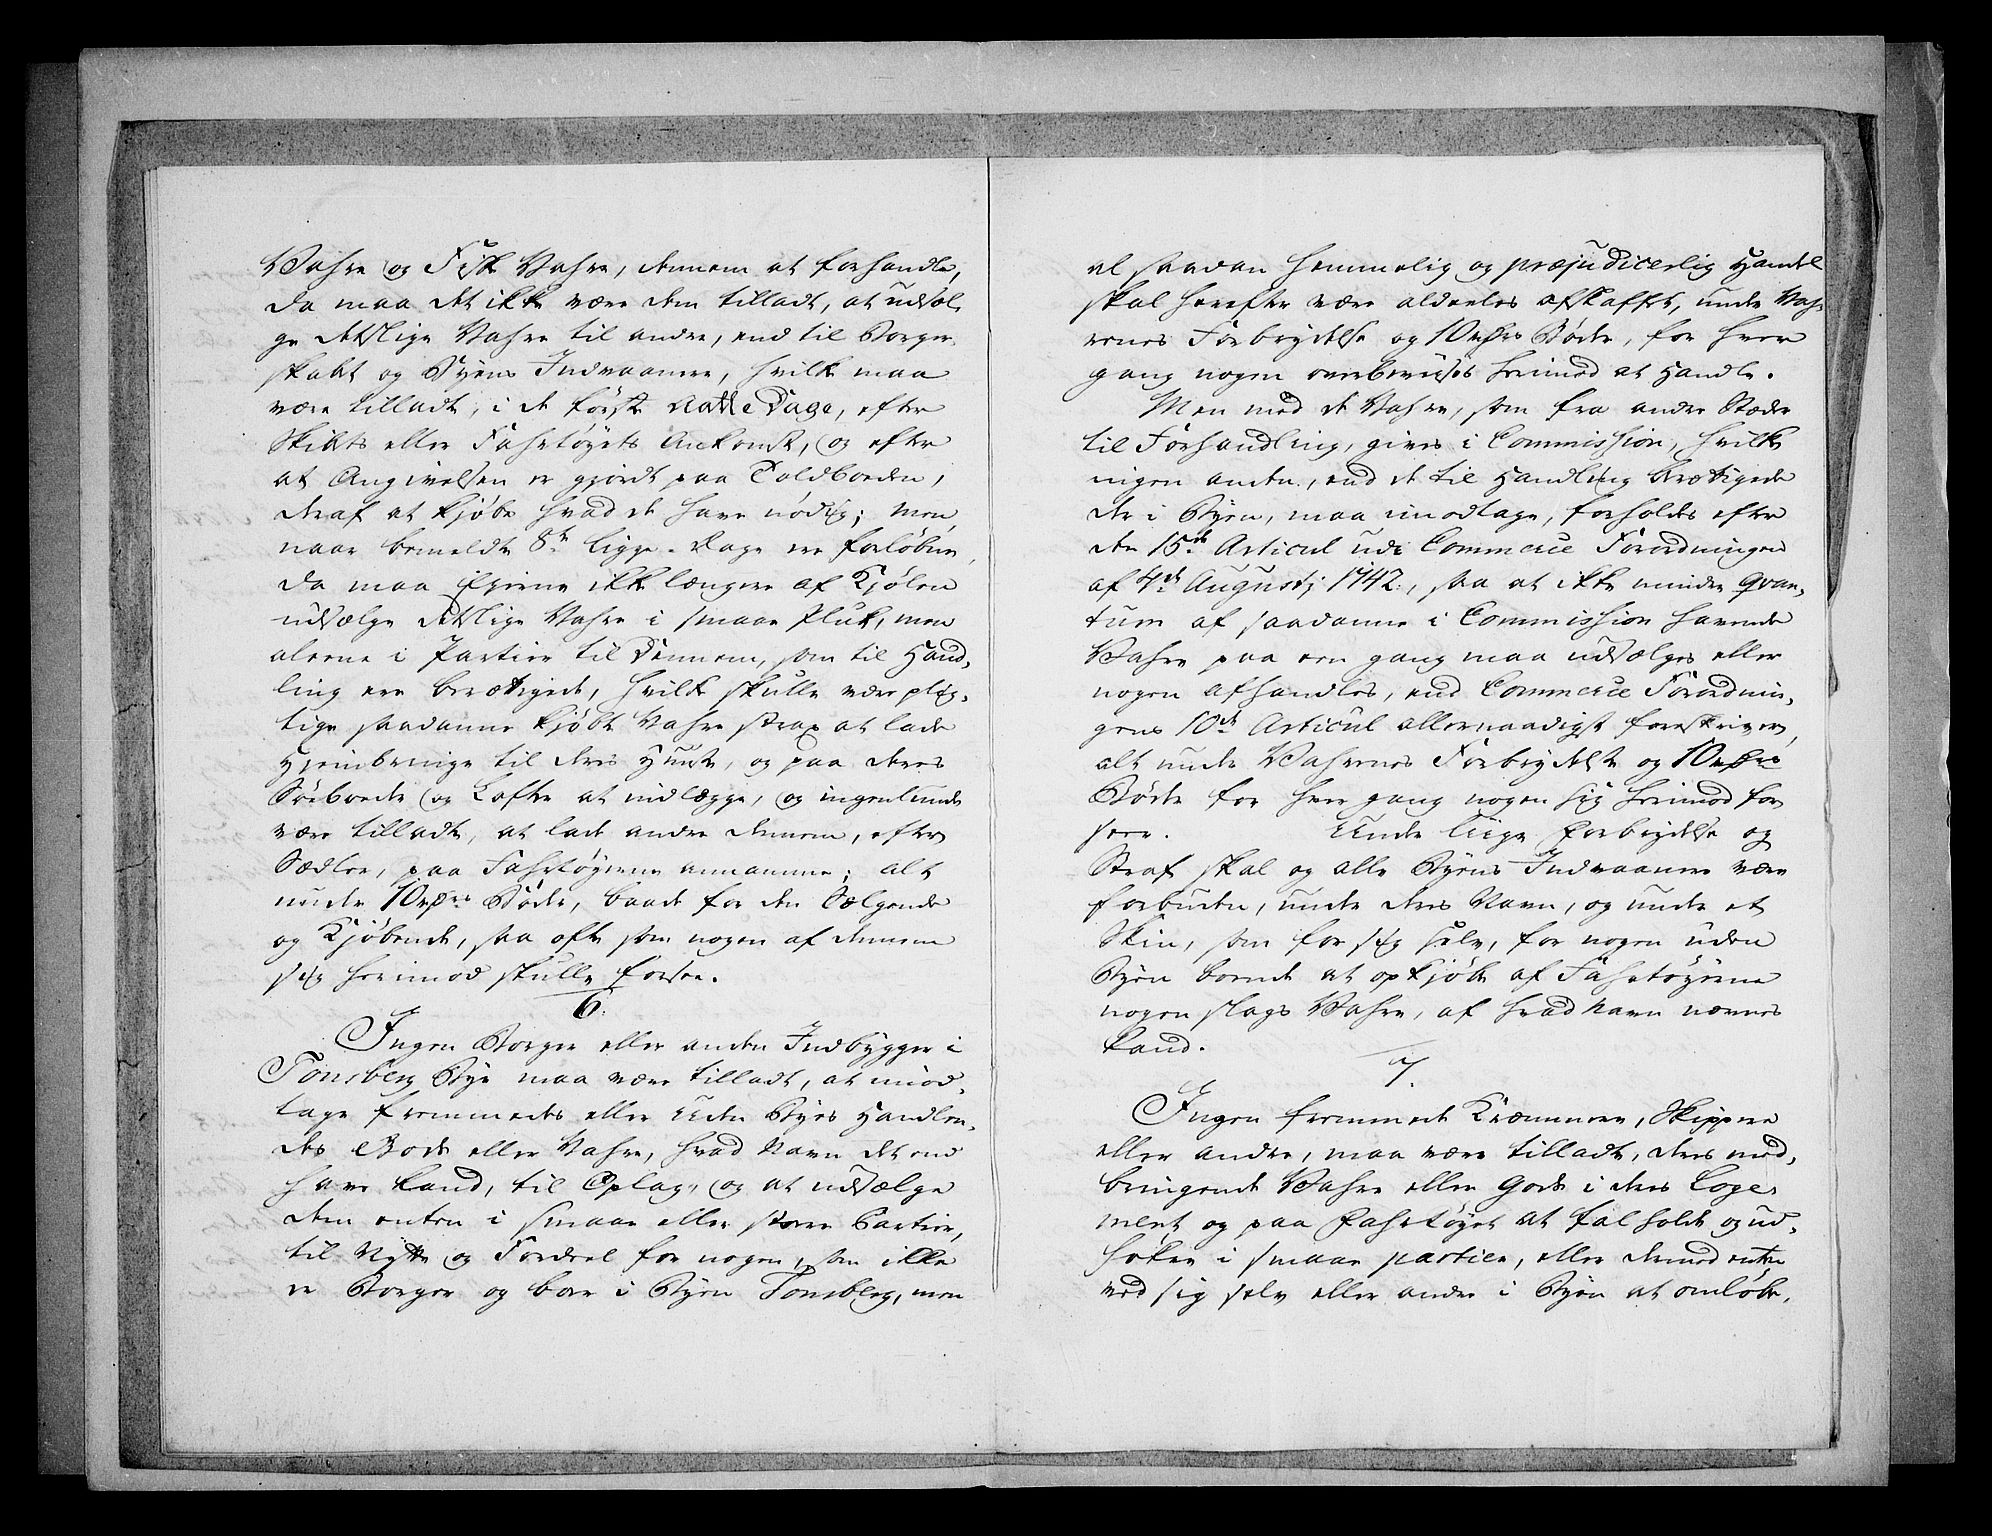 Vahre og Fisk Vahre, dennem at forhandle,
da maa det ikke være dem tilladt, at udsæl-
ge deslige Vahre til andre, end til Borger-
skabet og Byens Indvaanere, hvilke maa
være tilladt, i de første Aatte Dage, efter
Skibets eller Fahrtøyets Ankomst, og efter
at Angivelsen er gjordt paa Toldboeden,
deraf at kjøbe hvad de have nødig; Men,
naar bemeldte 8te ligge-Dage ere forløbne,
da maa Ejerne ikke længere af Kjølen
udsælge deslige Vahre i smaae Pluk, men
aleene i Partier til Dennem, som til Hand-
ling ere berættigede, hvilke skulle være plig-
tige saadanne kjøbte Vahre strax at lade
Hjembringe til deres Huuse, og paa deres
Søeboeder og Lofter at indlægge, og ingenlunde
være tilladt, at lade andre dennem, efter
Sædler, paa Fahrtøyerne annamme; alt
under 10 Rdrs Bøder, baade for den Sælgende
og Kjøbende, saa ofte som nogen af dennem
sig herimod skulle forsee.
6.
Ingen Borger eller anden Indbygger i
Tonsberg Bye maa være tilladt, at imod-
tage fremmedes eller Uden Byes Handlen-
des Gods eller Vahre, hvad Navn det end
have kand, til Oplag, og at udsælge
dem enten i smaae eller større Partier,
til Nytte og Fordeel for nogen, som ikke
er Borger og boer i Byen Tonsberg, men
al saadan hemmelig og præjudicerlig Handel
skal herefter være aldeeles afskaffet, under Vah-
renes Forbrydelse og 10 Rdrs Bøder, for hver
gang nogen overbeviises herimod at Handle.
Men med de Vahre, som fra andre Stæder
til Forhandling, gives i Commission, hvilke
ingen anden, end de til Handling berættigede
der i Byen, maa imodtage, forholdes efter
den 15de Articul udi Commerce Forordningen
af 4de Augustj 1742., saa at ikke mindre Qvan-
tum af saadanne i Commission havende
Vahre paa een gang maa udsælges eller
nogen afhandles, end Commerce Forordnin-
gens 10de Articul allernaadigst foreskriver,
alt under Vahrenes Forbrydelse og 10 Rdrs
Bøder for hver gang nogen sig herimod for
seer. Under liige forbrydelse og
Straf skal og alle Byens Indvaanere være
forbuden, under deres Navn, og under et
Skin, som for sig selv, for nogen uden
Byen boende at opkjøbe af Fahrtøyerne
nogen slags Vahre, af hvad Navn nævnes
kand.
7.
Ingen fremmede Kræmmere, Skippere
eller andre, maa være tilladt, deres med-
bringende Vahre eller Gods i deres Loge-
ment og paa Fahrtøyet at falholde og ud-
høkre i smaae partier, eller dermed enten
ved sig selv eller andre i Byen at omløbe,